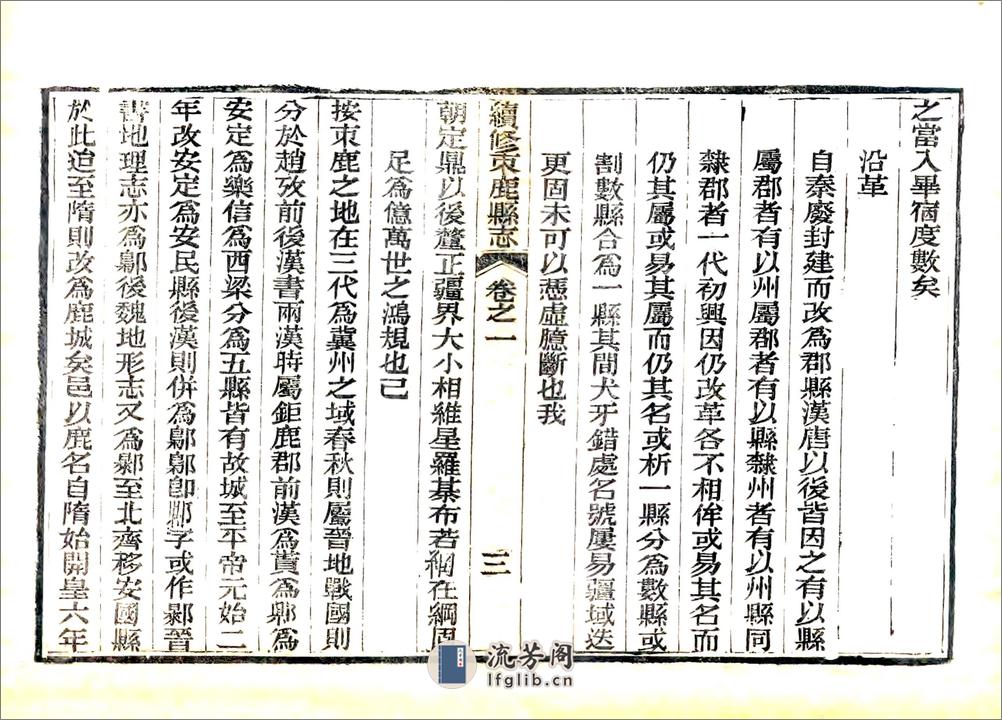 之當入畢宿度數矣
沿革
自秦廢封建而改爲郡縣漢唐以後皆因之有以縣
屬郡者有以州屬郡者有以縣隸州者有以州縣同
隸郡者一代初興因仍改革各不相侔或易其名而
仍其屬或易其屬而仍其名或析一縣分爲數縣或
割數縣合爲一縣其間犬牙錯處名號屢易疆域迭
更固未可以憑虛臆斷也我
續修束鹿縣志 卷之一 三
朝定鼎以後釐正疆界大小相維星羅棊布若網在綱固
足爲億萬世之鴻規也已
按束鹿之地在三代爲冀州之域春秋則屬晉地戰國則
分於趙攷前後漢書兩漢時屬鉅鹿郡前漢爲貰爲鄡爲
安定爲樂信爲西梁分爲五縣皆有故城至平帝元始二
年改安定爲安民縣後漢則併爲鄡鄡卽鄡字或作鄡晉
書地理志亦爲鄡後魏地形志又爲鄡至北齊移安國縣
於此迨至隋則改爲鹿城矣邑以鹿名自隋始開皇六年
流芳阁
lfglib.cn